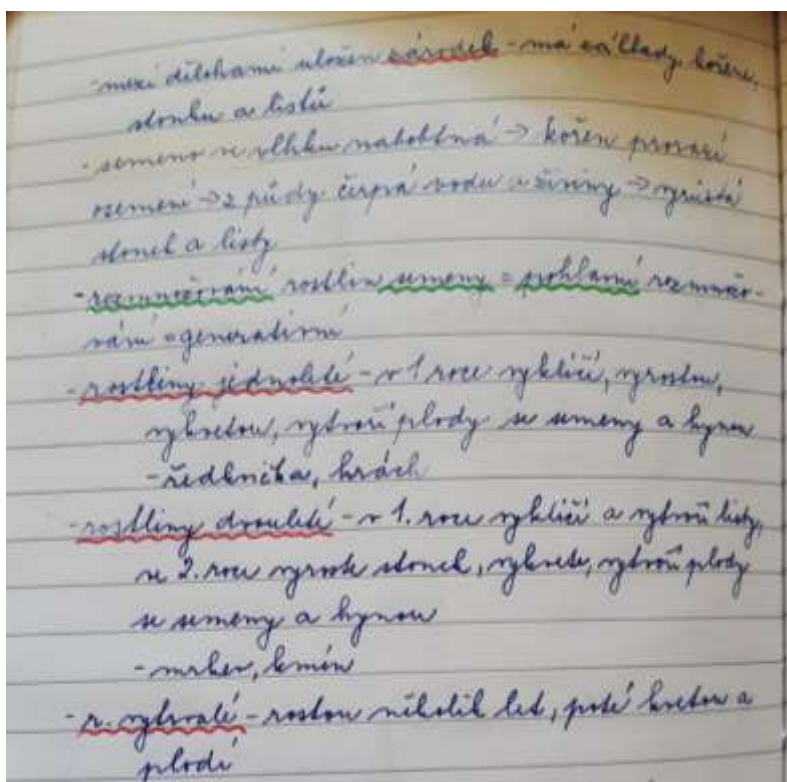 -mezi dělohami uložen zárodek - má základy kořene,
stonku a listů
- semeno ve vlhku nabobtná → kořen prorazí
osemení → z půdy čerpá vodu a živiny → vyrůstá
stonek a listy
- rozmnožování rostlin semeny = pohlavní rozmnožo-
vání = generativní
- rostliny jednoleté - v 1 roce vyklíčí, vyrostou,
vykvetou, vytvoří plody se semeny a hynou
- ředkvička, hrách
- rostliny dvouleté - v 1. roce vyklíčí a vytvoří listy,
ve 2. roce vyroste stonek, vykvete, vytvoří plody
se semeny a hynou
- mrkev, kmín
- r. vytrvalé - rostou několik let, poté kvetou a
plodí